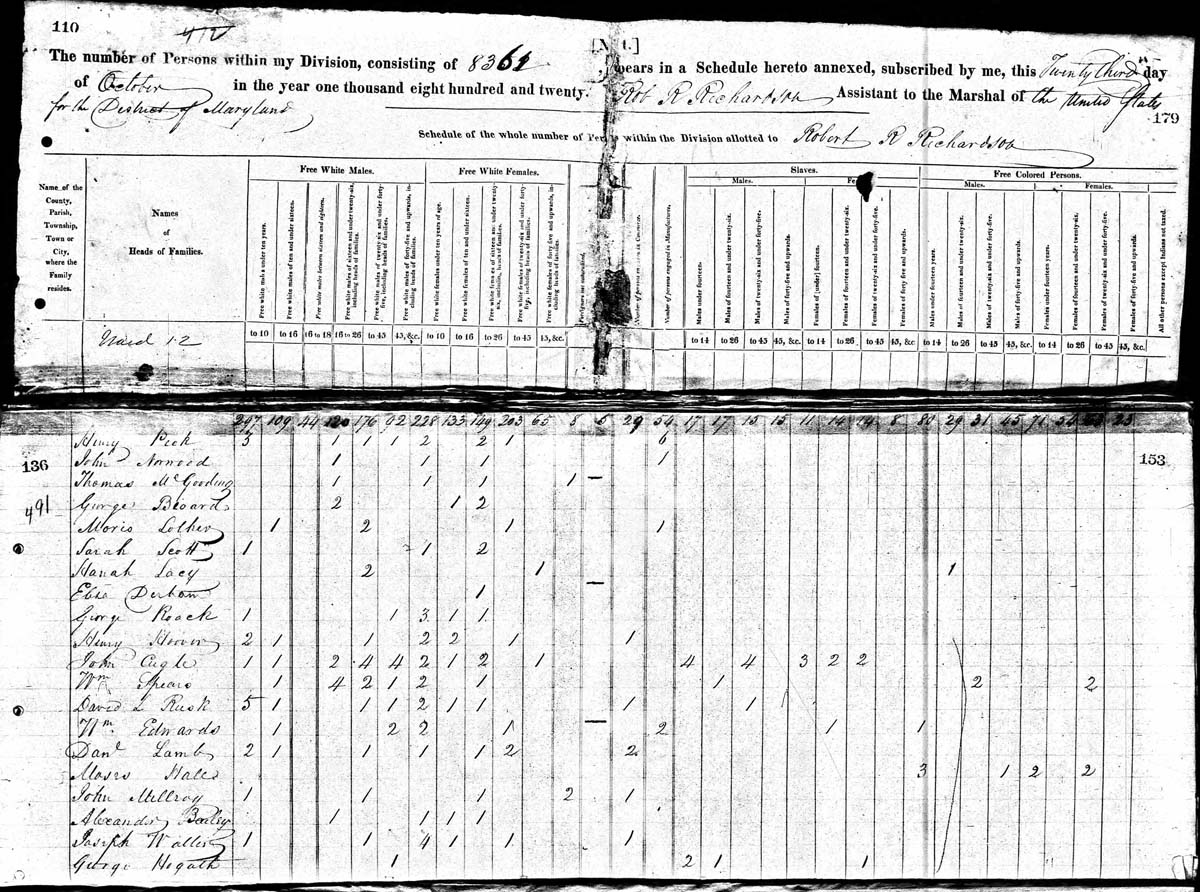 110
The number of Persons within my Division, consisting of 836 appears in a Schedule hereto annexed, subscribed by me, this Twenty third day
of October in the year one thousand eight hundred and twenty. Rob R Richardson Assistant to the Marshal of the United States
for the District of Maryland
179
Schedule of the whole number of Persons within the Division allotted to Robert R Richardson
Free White Males. Free White Females. Slaves. Free Colored Persons.
Males. Females. Males. Females.
Name of the County, Parish, Township, Town or City, where the Family resides.
Names of Heads of Families.
Free white males under ten years.
Free white males of ten and under sixteen.
Free white males between sixteen and eighteen.
Free white males of sixteen and under twenty-six, including heads of families.
Free white males of twenty-six and under forty-five, including heads of families.
Free white males of forty-five and upwards, including heads of families.
Free white females under ten years of age.
Free white females of ten and under sixteen.
Free white females of sixteen and under twenty-six, including heads of families.
Free white females of twenty-six and under forty-five, including heads of families.
Free white females of forty-five and upwards, including heads of families.
Foreigners not naturalized.
Number of persons engaged in Commerce.
Number of persons engaged in Manufactures.
Males under fourteen.
Males of fourteen and under twenty-six.
Males of twenty-six and under forty-five.
Males of forty-five and upwards.
Females of [under] fourteen.
Females of fourteen and under twenty-six.
Females of twenty-six and under forty-five.
Females of forty five and upwards.
Males under fourteen years.
Males of fourteen and under twenty-six.
Males of twenty-six and under forty-five.
Males of forty-five and upwards.
Females under fourteen years.
Females of fourteen and under twenty-six.
Females of twenty-six and under forty-five.
Females of forty-five and upwards.
All other persons except Indians not taxed.
to 10 to 16 16 to 18 16 to 26 to 45 45, &c. to 10 to 16 to 26 to 45 45, &c. to 14 to 26 to 45 45, &c. to 14 to 26 to 45 45, &c. to 14 to 26 to 45 45, &c. to 14 to 26 to 45 45, &c.
Ward 12
297 109 44 120 176 92 228 133 149 203 65 8 6 29 54 17 17 15 15 11 14 14 8 80 29 31 45 71 54 23
Henry Peck 3 1 1 1 2 2 1 6
136 John Norwood 1 1 1 1 153
Thomas Mc Gooding 1 1 1 1
491 George Beoard 2 1 2
Moris Lother 1 2 1 1
Sarah Scott 1 1 2
Hanah Lacy 2 1 1
Derbow 1
George Roack 1 1 3 1 1
Henry Hoover 2 1 1 2 2 1 1
John Cugle 1 1 2 4 4 2 1 2 1 4 4 3 2 2
Wm Spears 1 4 2 1 2 1 1 2 2
David L Rusk 5 1 1 1 2 1 1 1 1
Wm Edwards 1 2 2 1 2 1 1
Danl Lamb 2 1 1 1 1 2 2
Moses Hales 3 1 2 2
John Millroy 1 1 1 2 1
Alexander Bailey 1 1 1 1
Joseph Wallis 1 1 4 1 1 1
George Hogath 1 2 1 1